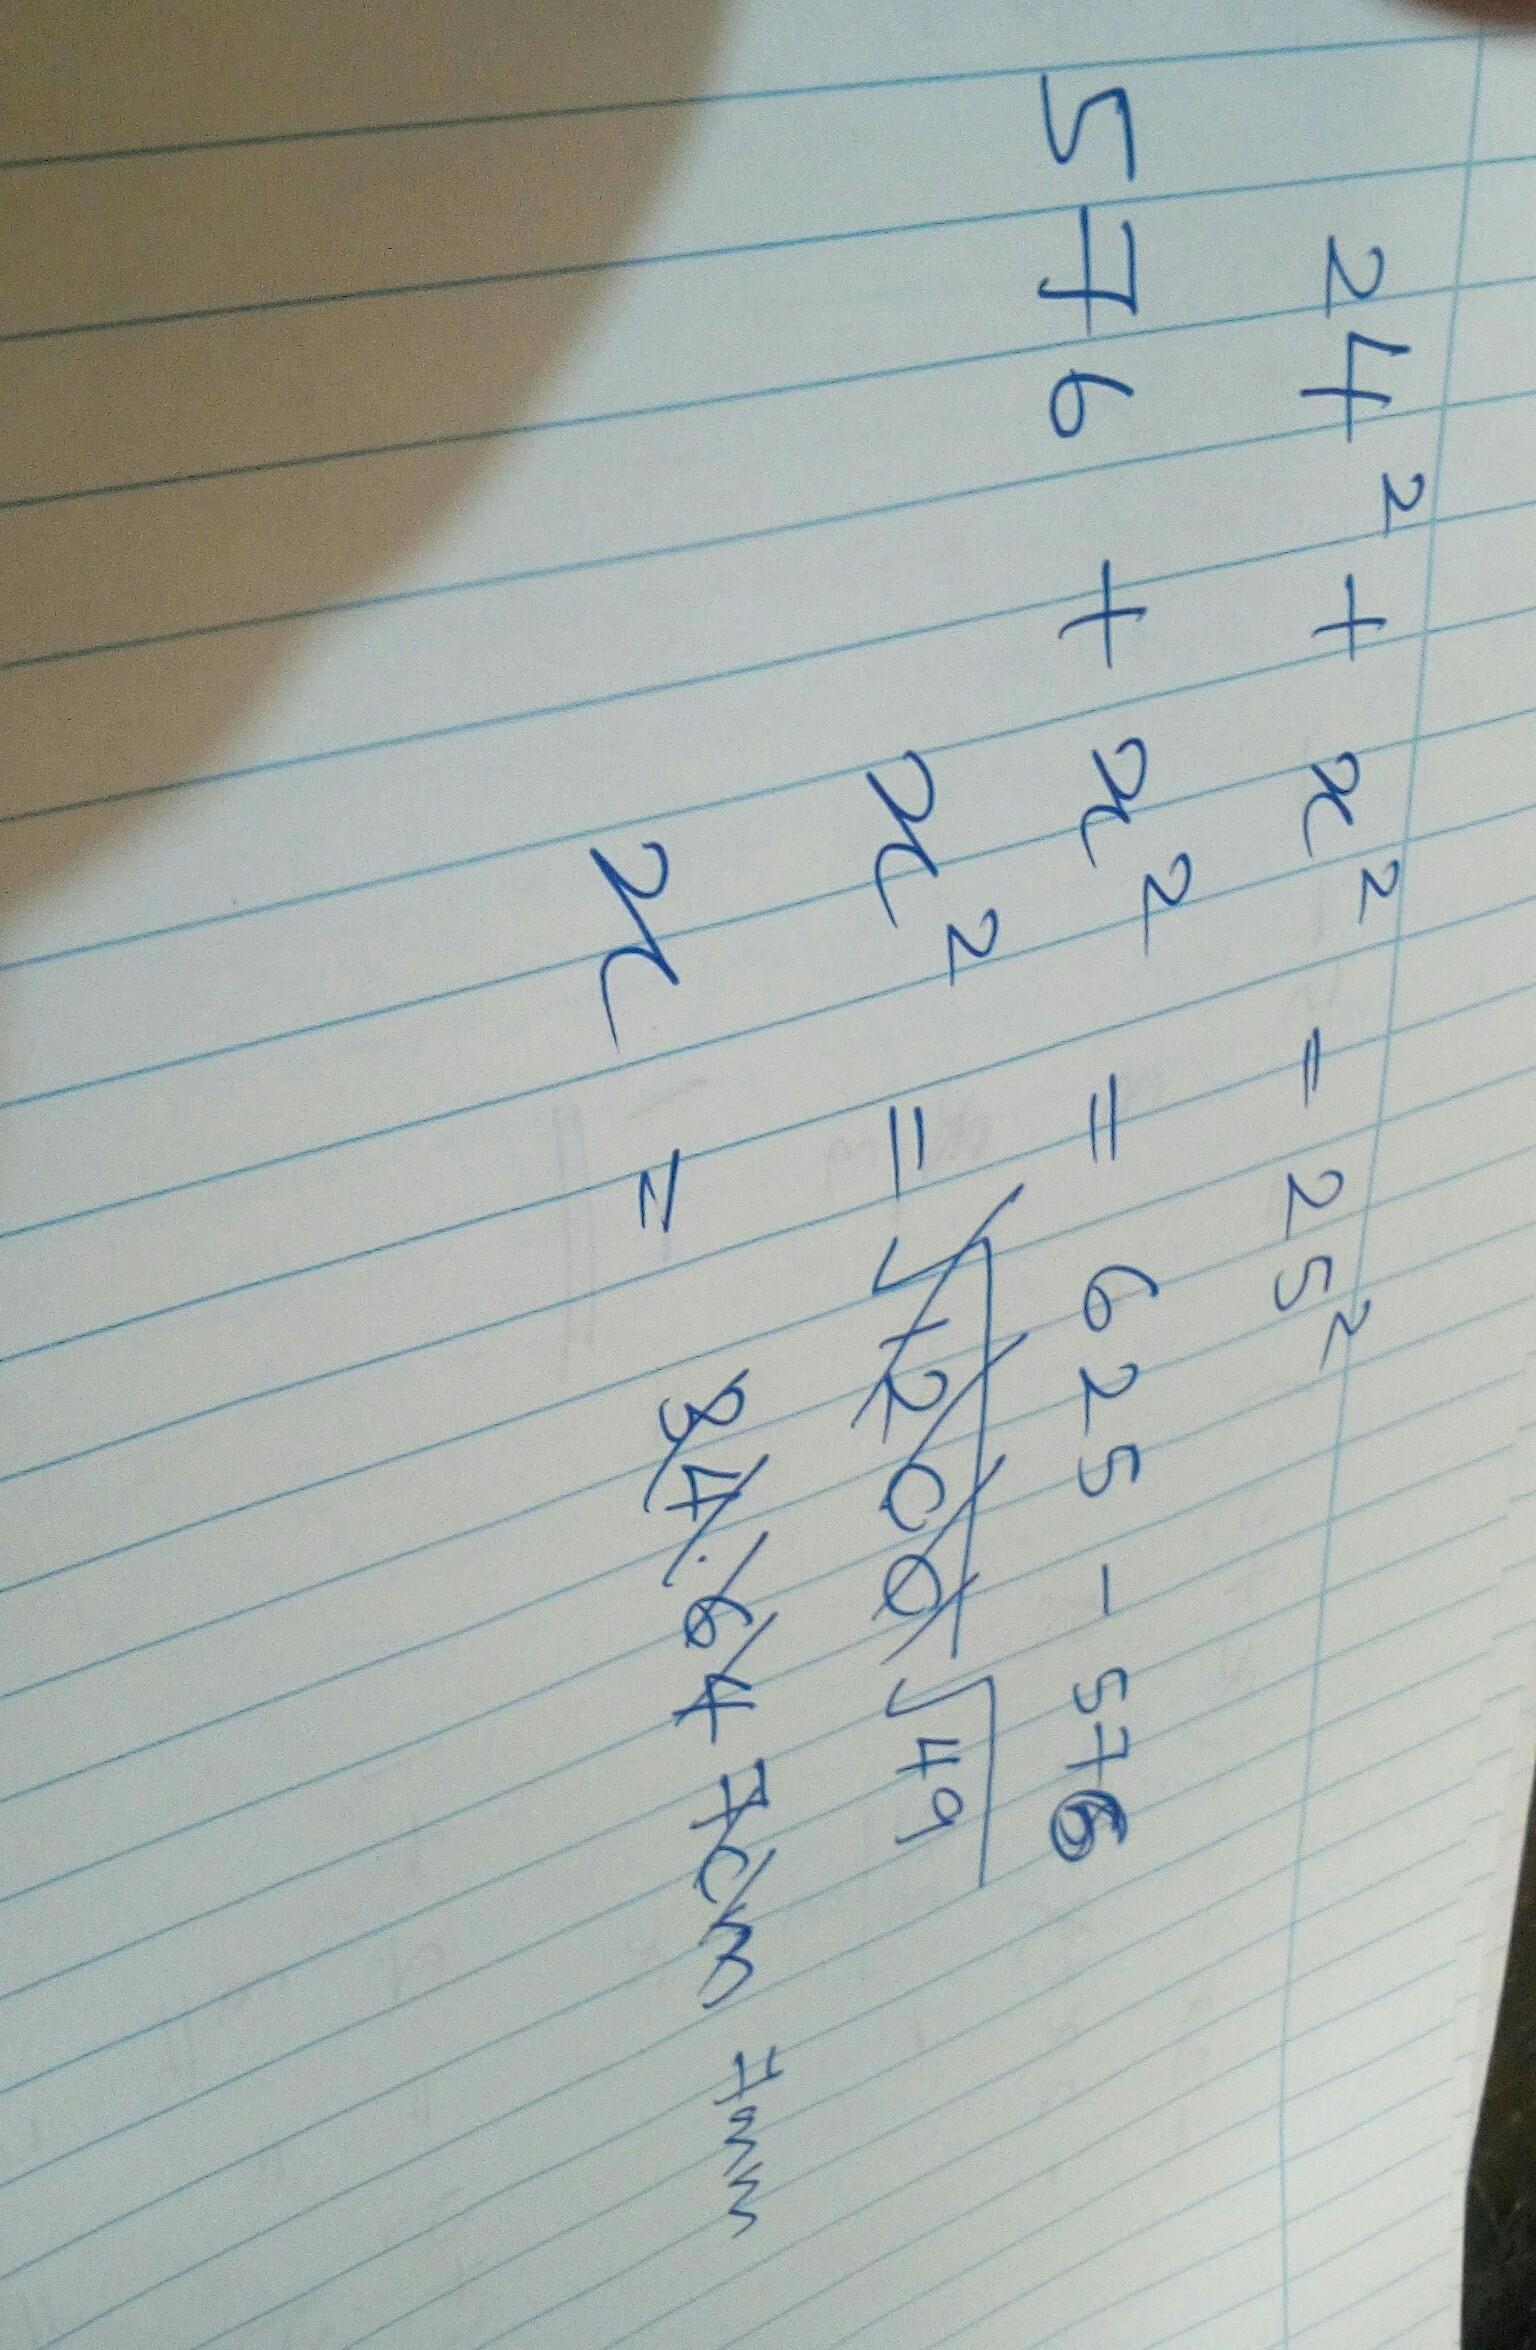 24² + x² = 25²
576 + x² = 625 - 576
x² = √1200 √49
x = 34.64 7cm 7mm